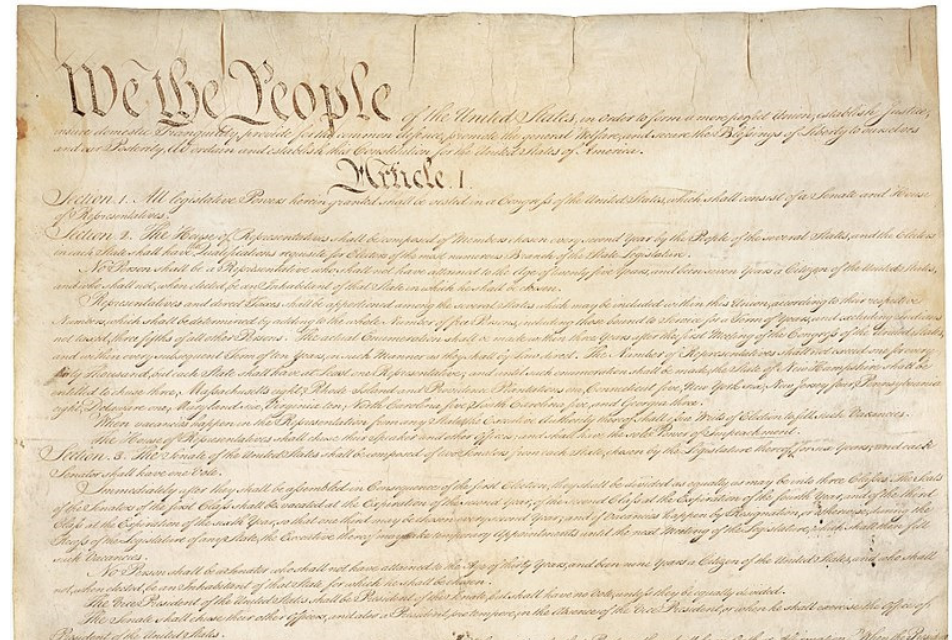 We the People of the United States, in Order to form a more perfect Union, establish Justice,
insure domestic Tranquility, provide for the common defence, promote the general Welfare, and secure the Blessings of Liberty to ourselves
and our Posterity, do ordain and establish this Constitution for the United States of America.
Article. I.
Section. 1. All legislative Powers herein granted shall be vested in a Congress of the United States, which shall consist of a Senate and House
of Representatives.
Section. 2. The House of Representatives shall be composed of Members chosen every second Year by the People of the several States, and the Electors
in each State shall have the Qualifications requisite for Electors of the most numerous Branch of the State Legislature.
No Person shall be a Representative who shall not have attained to the Age of twenty five Years, and been seven Years a Citizen of the United States,
and who shall not, when elected, be an Inhabitant of that State in which he shall be chosen.
Representatives and direct Taxes shall be apportioned among the several States which may be included within this Union, according to their respective
Numbers, which shall be determined by adding to the whole Number of free Persons, including those bound to Service for a Term of Years, and excluding Indians
not taxed, three fifths of all other Persons. The actual Enumeration shall be made within three Years after the first Meeting of the Congress of the United States,
and within every subsequent Term of ten Years, in such Manner as they shall by Law direct. The Number of Representatives shall not exceed one for every
thirty Thousand, but each State shall have at Least one Representative; and until such enumeration shall be made, the State of New Hampshire shall be
entitled to chuse three, Massachusetts eight, Rhode Island and Providence Plantations one, Connecticut five, New York six, New Jersey four, Pennsylvania
eight, Delaware one, Maryland six, Virginia ten, North Carolina five, South Carolina five, and Georgia three.
When vacancies happen in the Representation from any State, the Executive Authority thereof shall issue Writs of Election to fill such Vacancies.
The House of Representatives shall chuse their Speaker and other Officers; and shall have the sole Power of Impeachment.
Section. 3. The Senate of the United States shall be composed of two Senators from each State, chosen by the Legislature thereof, for six Years; and each
Senator shall have one Vote.
Immediately after they shall be assembled in Consequence of the first Election, they shall be divided as equally as may be into three Classes. The Seats
of the Senators of the first Class shall be vacated at the Expiration of the second Year, of the second Class at the Expiration of the fourth Year, and of the third
Class at the Expiration of the sixth Year, so that one third may be chosen every second Year; and if Vacancies happen by Resignation, or otherwise, during the
Recess of the Legislature of any State, the Executive thereof may make temporary Appointments until the next Meeting of the Legislature, which shall then fill
such Vacancies.
No Person shall be a Senator who shall not have attained to the Age of thirty Years, and been nine Years a Citizen of the United States, and who shall
not, when elected, be an Inhabitant of that State for which he shall be chosen.
The Vice President of the United States shall be President of the Senate, but shall have no Vote, unless they be equally divided.
The Senate shall chuse their other Officers, and also a President pro tempore, in the Absence of the Vice President, or when he shall exercise the Office of
President of the United States.